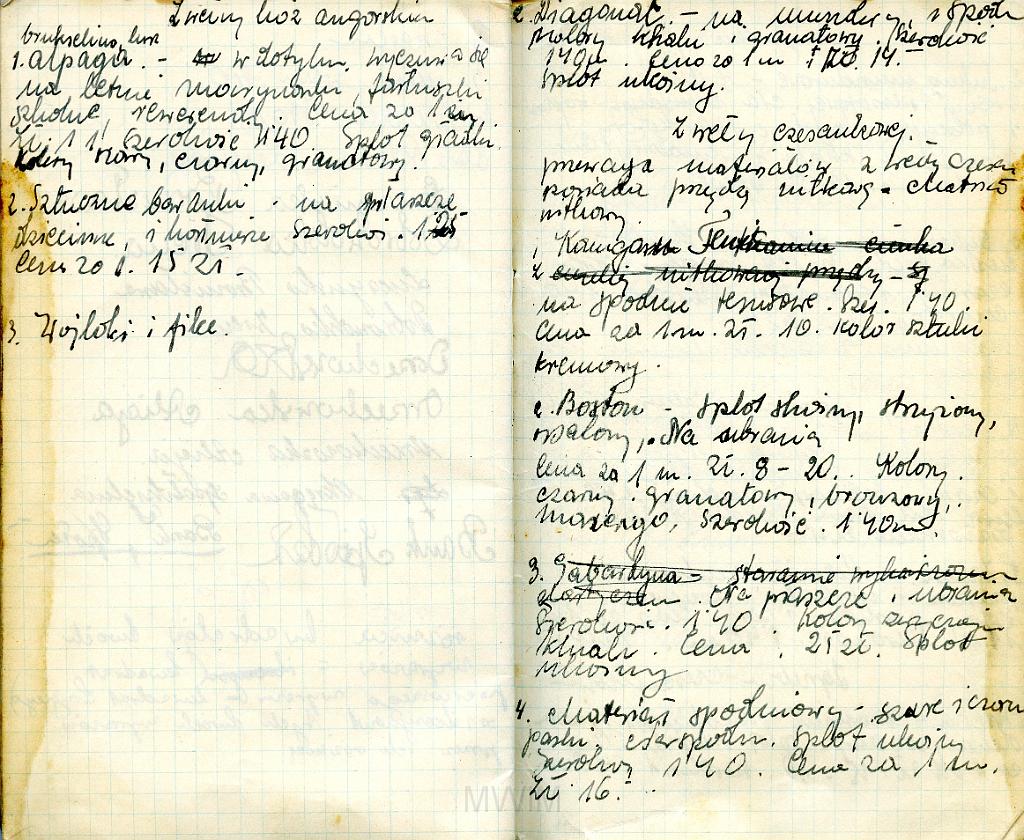 Z wełny kóz angorskich
1. Alpaga. - w dotyku, wyczuwa się
na letnie marynarki, fartuszki
szkolne, rewerendy. Cena za 1 m
Zł. 11. Szerokość 1'40 Splot gładki.
Kolory szary, czarny, granatowy.
2. Sztuczne baranki - na płaszcze
dziecinne, i kołnierze Szerokoś. 1
Cena za 1. 15 zł.
3. Wojłoki i filce.
2. Diagonal. - na mundury, i spodn
Kolory khaki i granatowy. Szerokość
140m. Cena za 1 m Zł. 14.
Splot ukośny.
Z wełny czesankowej.
przewaga materiałów z wełny czesan
posiada przędzę nitkową -
nitkowy.
Kamgarn Tenis cienka
z nitkowanej przędzy -
na spodnie tenisowe. Szer. 1'40.
Cena za 1 m. zł. 10. Kolor
kremowy.
2. Boston - splot skośny, strzyżony,
opalony. Na ubrania
Cena za 1 m. Zł. 8 - 20. Kolory.
czarny, granatowy, bronzowy,
marengo, Szerokość. 1'40m.
3. Gabardyna - starannie wykańczana
Na płaszcze i ubrania
Szerokość. 1'40. Kolory
khaki. Cena. 21 zł. Splot
ukośny
4. Materiał spodniowy - szare i czarn
paski, splot ukośny
Szerokość 1'40. Cena za 1 m.
Zł 16.
MWM